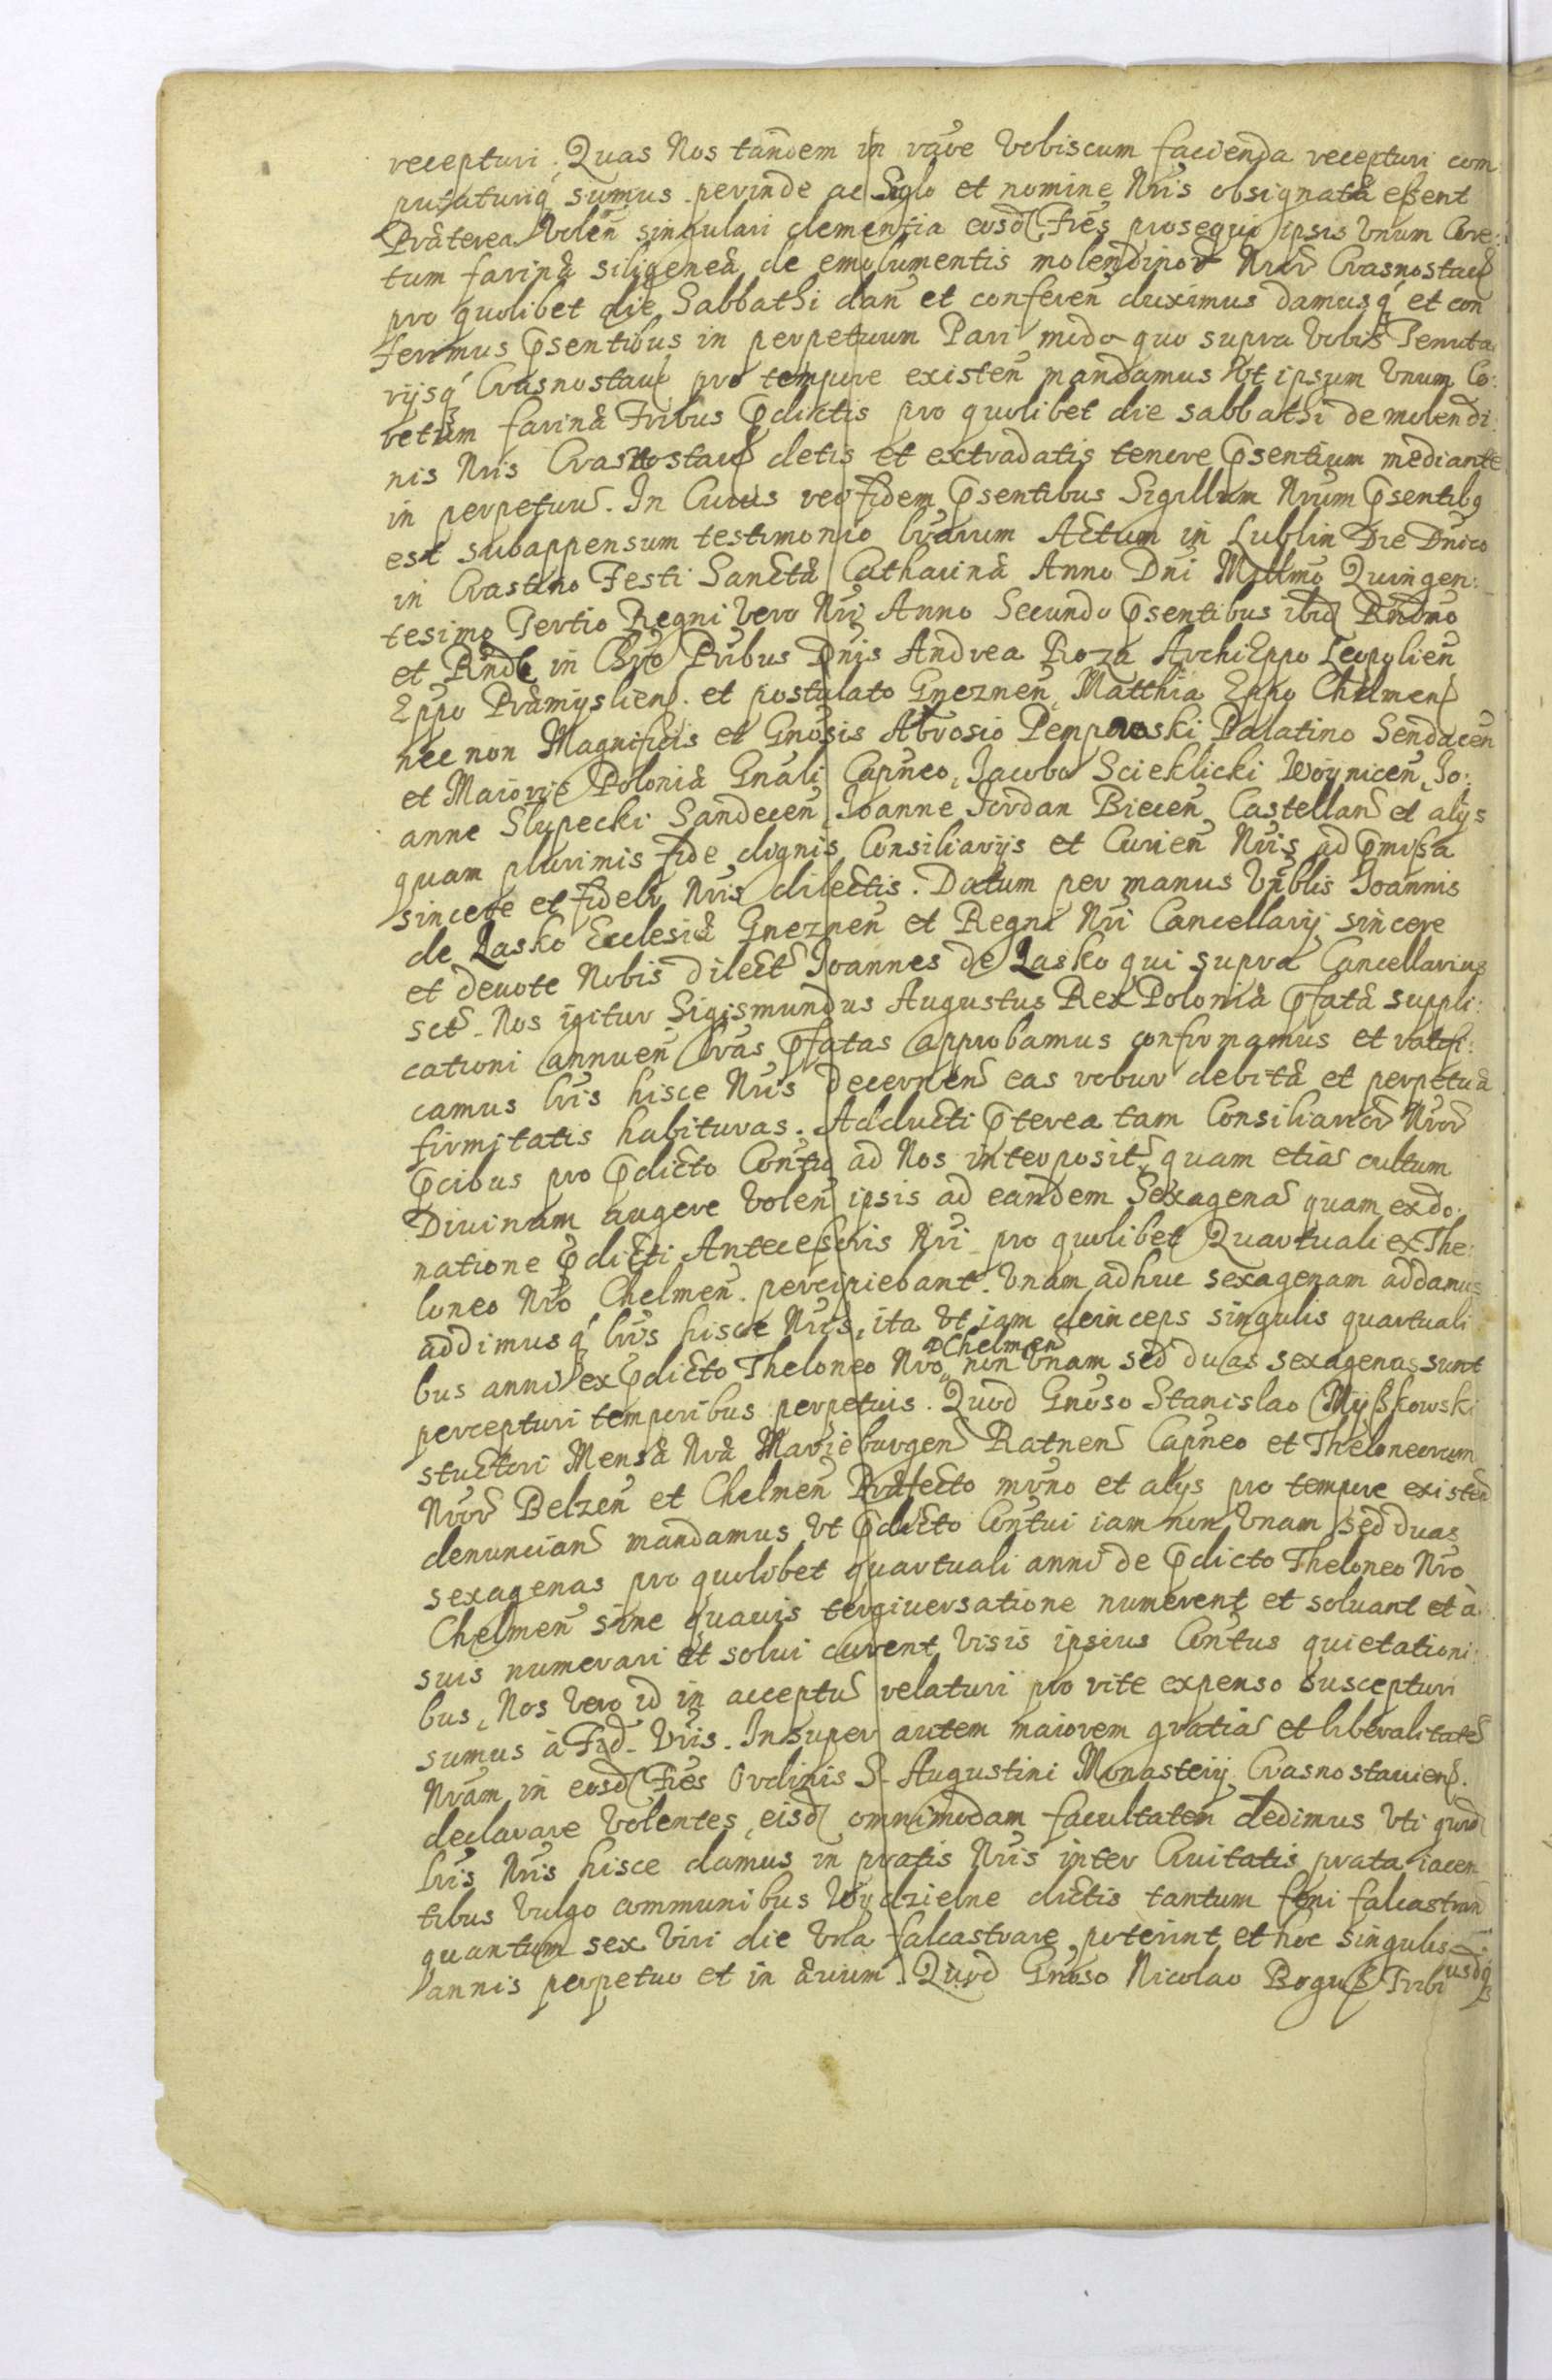 recepturi. Quas Nos tandem in rāōe Vobiscum facienda recepturi com
putaturiq́ sumus perinde ac Siglo et nomine Nrīs obsignatæ essent
Præterea Volen̄ singulari clementia eosd Fres prosequi ipsis Vnum Core:
tum farinæ siligeneæ de emolumentis molendinor Nrōr Crasnostau
pro quolibet die Sabbathi dan̄ et conferen̄ duximus damusq́ et con
ferimus psentibus in perpetuum Pari modo quo supra Vobis Tenuta
rijsq́ Crasnostau pro tempore existen̄ mandamus Vt ipsum Vnum Co:
retum farinæ Fribus pdictis pro quolibet die sabbathi de molendi:
nis Nrīs Crasnostau detis et extradatis tenore psentium mediante
in perpetuū. In Cuius rei fidem psentibus Sigillum Nrūm psentibq
est subappensum testimonio lrārum Actum in Lublin Die Dnīco
in Crastino Festi Sanctæ Catharinæ Anno Dnī Millmō Quingen:
tesimo Tertio Regni Vero Nrī Anno Secundo psentibus ibid Rndmō
et Rndō in Chrō Prībus Dnīs Andrea Roza ArchiEppo Leopolien̄
Eppo Præmyslien. et postulato Gneznen̄, Matthia Eppo Chelmen
nec non Magnificis et Gnōsis Abrosio Pempowski Palatino Sendacen̄
et Maioris Poloniæ Gnāli Capneo, Jacobo Scieklicki Woynicen̄, Jo:
anne Slupecki Sandecen̄, Joanne Jordan Biecen̄, Castellan̄ et alijs
quam plurimis fide dignis Consiliarijs et Curien̄ Nrīs ad pmissa
sincere et fideli Nrīs dilectis. Datum per manus Vnblis Joannis
de Lasko Ecclesiæ Gneznen̄ et Regni Nrī Cancellarij sincere
et deuote Nobis dilect Joannes de Lasko qui supra Cancellarius
sct. Nos igitur Sigismundus Augustus Rex Poloniæ pfatæ suppli:
cationi annuen̄ lrās pfatas approbamus confirmamus et ratifi:
camus lrīs hisce Nrīs Decernen̄ eas robur debitæ et perpetuæ
firmitatis habituras. Adducti pterea tam Consiliarior Nrōr
pcibus pro pdicto Contu ad Nos interposit, quam etiā cultum
Diuinum augere Volen̄ ipsis ad eandem Sexagenā quam ex do:
natione pdicti Antecessoris Nrī pro quolibet Quartuali ex The:
loneo Nrō Chelmen̄. percipiebant. Vnam adhuc sexagenam addamus
addimusq́ lrīs hisce Nrīs, ita Vt iam deinceps singulis quartuali
bus anni ex pdicto Theloneo Nrō Chelmen non Vnam sed duas sexagenas sunt
percepturi temporibus perpetuis. Quod Gnōso Stanislao Myszkowski
structori Mensæ Nræ Marieburgen Ratnen Capneo et Theloneorum
Nrōr Belzen̄ et Chelmen̄ Præfecto mrno et alijs pro tempore existen
denuncian mandamus Vt pdicto Contui iam non Vnam sed duas
sexagenas pro quolibet quartuali anni de pdicto Theloneo Nrō
Chelmen̄ sine quauis tergiuersatione numerent et soluant et à
suis numerari et solui curent Visis ipsius Contus quietationi:
bus, Nos Vero id in acceptū relaturi pro rite expenso suscepturi
sumus à Fid. Vrīs. Insuper autem maiorem gratiā et liberalitatē
Nrām in eosd Fres Ordinis S. Augustini Monasterij Crasnostauien.
declarare Volentes, eisd omnimodam facultatem dedimus Vti quid
lrīs Nrīs hisce damus in pratis Nrīs inter Ciuitatis prata iacen
tibus Vulgo communibus Wydzielne dictis tantum feni falcastrand
quantum sex Viri die Vna falcastrare poterint et hoc singulis
annis perpetuo et in æuum. Quod Gnōso Nicolao Bogusz Tribi